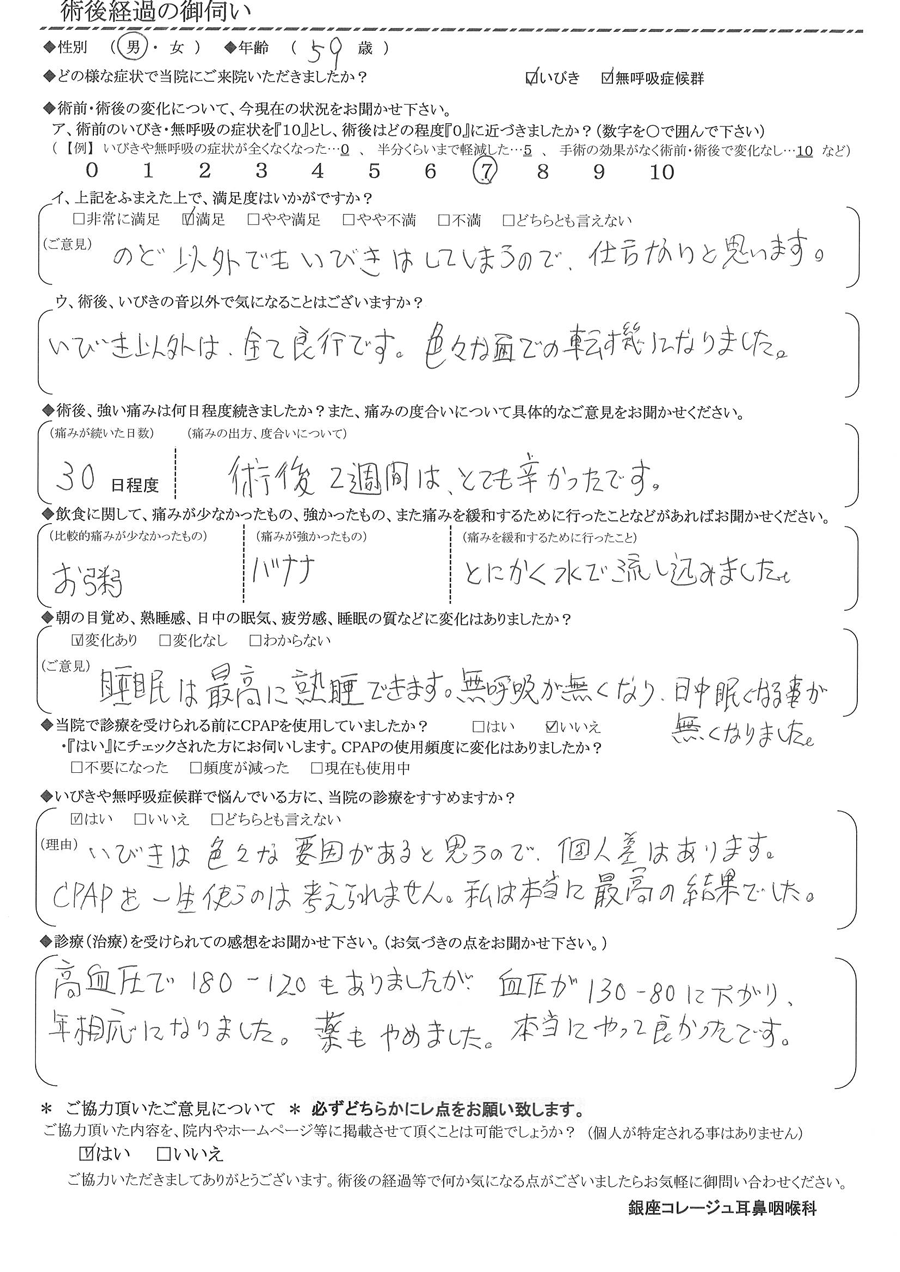 術後経過の御伺い
◆性別 ( 男 ・ 女 ) ◆年齢 ( 59 歳 )
◆どの様な症状で当院にご来院いただきましたか? ☑いびき ☑無呼吸症候群
◆術前・術後の変化について、今現在の状況をお聞かせ下さい。
ア、術前のいびき・無呼吸の症状を『10』とし、術後はどの程度『0』に近づきましたか?(数字を〇で囲んで下さい)
(【例】いびきや無呼吸の症状が全くなくなった…0 、 半分くらいまで軽減した…5 、 手術の効果がなく術前・術後で変化なし…10 など)
0 1 2 3 4 5 6 7 8 9 10
イ、上記をふまえた上で、満足度はいかがですか?
□非常に満足 ☑満足 □やや満足 □やや不満 □不満 □どちらとも言えない
(ご意見) のど以外でもいびきはしてしまうので、仕方なりと思います。
ウ、術後、いびきの音以外で気になることはございますか?
いびき以外は、全て良行です。色々な面での転機になりました。
◆術後、強い痛みは何日程度続きましたか?また、痛みの度合いについて具体的なご意見をお聞かせください。
(痛みが続いた日数) (痛みの出方、度合いについて)
30 日程度 術後2週間は、とても辛かったです。
◆飲食に関して、痛みが少なかったもの、強かったもの、また痛みを緩和するために行ったことなどがあればお聞かせください。
(比較的痛みが少なかったもの) (痛みが強かったもの) (痛みを緩和するために行ったこと)
お粥 バナナ とにかく水で流し込みました。
◆朝の目覚め、熟睡感、日中の眠気、疲労感、睡眠の質などに変化はありましたか?
☑変化あり □変化なし □わからない
(ご意見) 睡眠は最高に熟睡できます。無呼吸が無くなり、日中眠くなる事が
無くなりました。
◆当院で診療を受けられる前にCPAPを使用していましたか? □はい ☑いいえ
・『はい』にチェックされた方にお伺いします。CPAPの使用頻度に変化はありましたか?
□不要になった □頻度が減った □現在も使用中
◆いびきや無呼吸症候群で悩んでいる方に、当院の診療をすすめますか?
☑はい □いいえ □どちらとも言えない
(理由) いびきは色々な要因があると思うので、個人差はあります。
CPAPを一生使うのは考えられません。私は本当に最高の結果でした。
◆診療(治療)を受けられての感想をお聞かせ下さい。(お気づきの点をお聞かせ下さい。)
高血圧で180-120もありましたが、血圧が130-80に下がり、
年相応になりました。薬もやめました。本当にやって良かったです。
* ご協力頂いたご意見について * 必ずどちらかにレ点をお願い致します。
ご協力頂いた内容を、院内やホームページ等に掲載させて頂くことは可能でしょうか? (個人が特定される事はありません)
☑はい □いいえ
ご協力いただきましてありがとうございます。術後の経過等で何か気になる点がございましたらお気軽に御問い合わせください。
銀座コレージュ耳鼻咽喉科